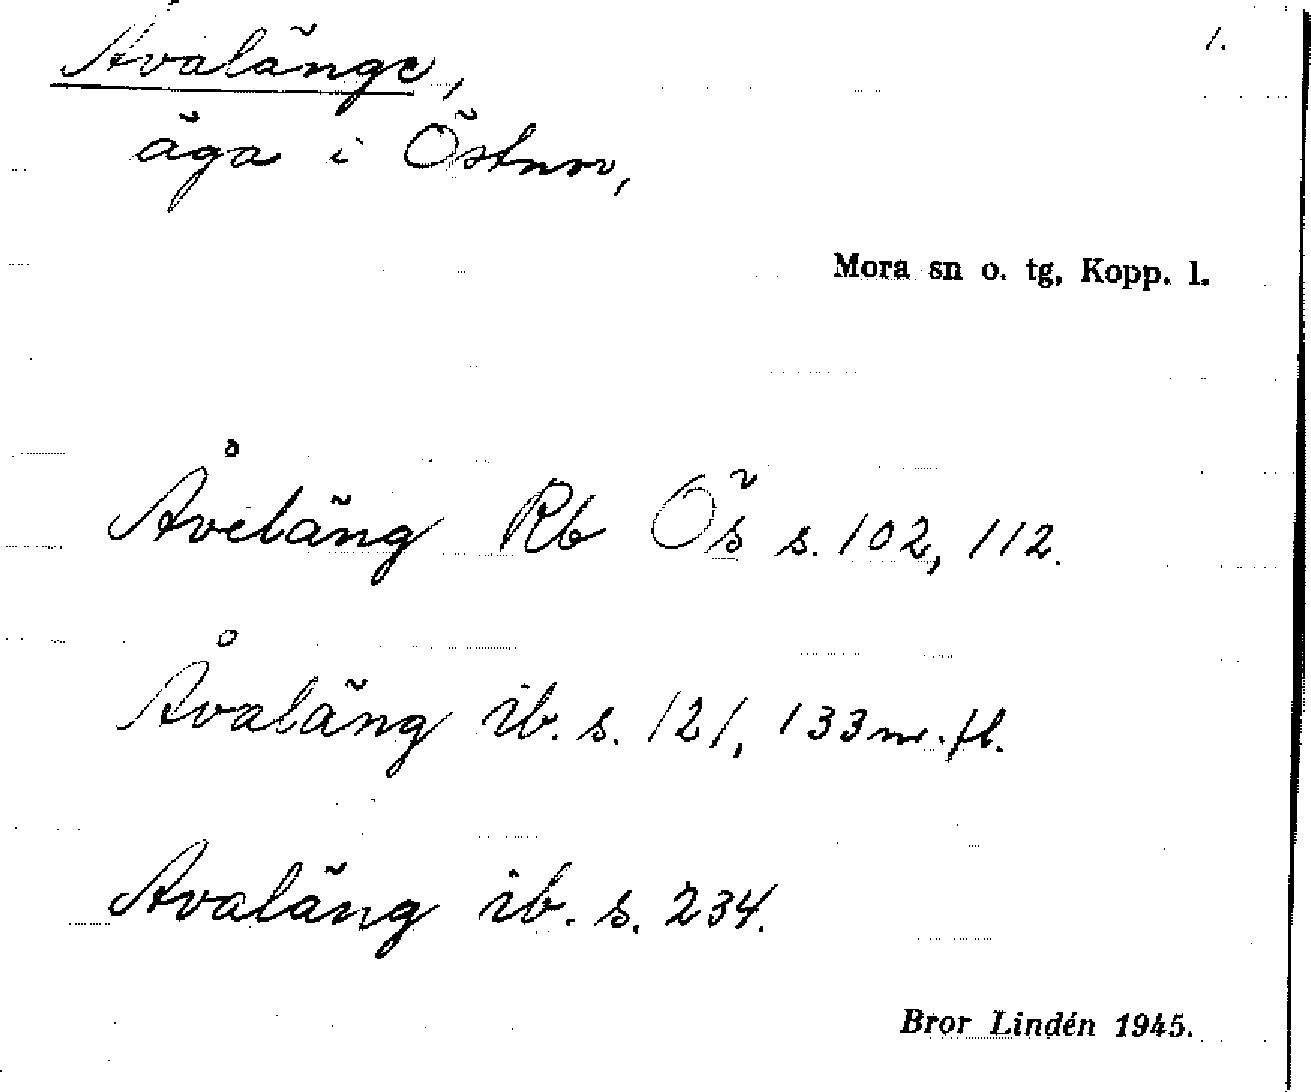 1.
Avalänge,
äga i Östnor,
Mora sn o. tg, Kopp. l.
Åveläng Rb Ös s. 102, 112.
Åvaläng ib. s. 121, 133 m. fl.
Avaläng ib. s. 234.
Bror Lindén 1945.